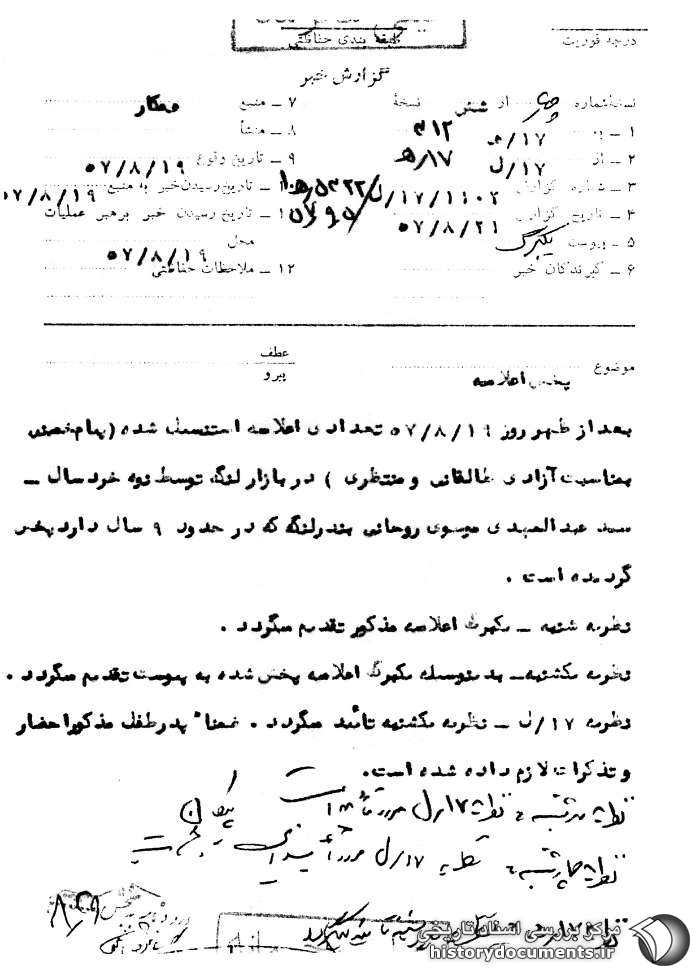 درجه فوریت
طبقه بندی حفاظتی
گزارش خبر
نسخهٔ شماره چهار از شش نسخهٔ
۱ ـ به ۳۱۲
۲ ـ از ۱۷/ل ۱۷/هـ
۳ ـ شماره گزارش ۱۱۰۲/۱۷/ل
۴ ـ تاریخ گزارش ۵۷/۸/۲۱
۵ ـ پیوست یکبرگ
۶ ـ گیرندگان خبر
۷ ـ منبع همکار
۸ ـ منشأ
۹ ـ تاریخ وقوع ۵۷/۸/۱۹
۱۰ ـ تاریخ رسیدن خبر به منبع ۵۷/۸/۱۹
۱۱ ـ تاریخ رسیدن خبر برهبر عملیات
محل ۵۷/۸/۱۹
۱۲ ـ ملاحظات حفاظتی
موضوع پخش اعلامیه
عطف
پیرو
بعد از ظهر روز ۵۷/۸/۱۹ تعدادی اعلامیه استنسیل شده (پیام خمینی
بمناسبت آزادی طالقانی و منتظری ) در بازار لنگه توسط نوه خردسال ـ
سید عبدالمهدی موسوی روحانی بندرلنگه که در حدود ۹ سال دارد پخش
گردیده است .
نظریه شنبه ـ یکبرگ اعلامیه مذکور تقدیم میگردد .
نظریه یکشنبه ـ بدینوسیله یکبرگ اعلامیه پخش شده به پیوست تقدیم میگردد .
نظریه ۱۷/ل ـ نظریه یکشنبه تائید میگردد . ضمناً پدر طفل مذکور احضار
و تذکرات لازم داده شده است.
نظریه سه شنبه : نظریه ۱۷/ل مورد تائید است
نظریه چهارشنبه : نظریه ۱۷/ل مورد تأیید است
مرکز بررسی اسناد تاریخی
historydocuments.ir